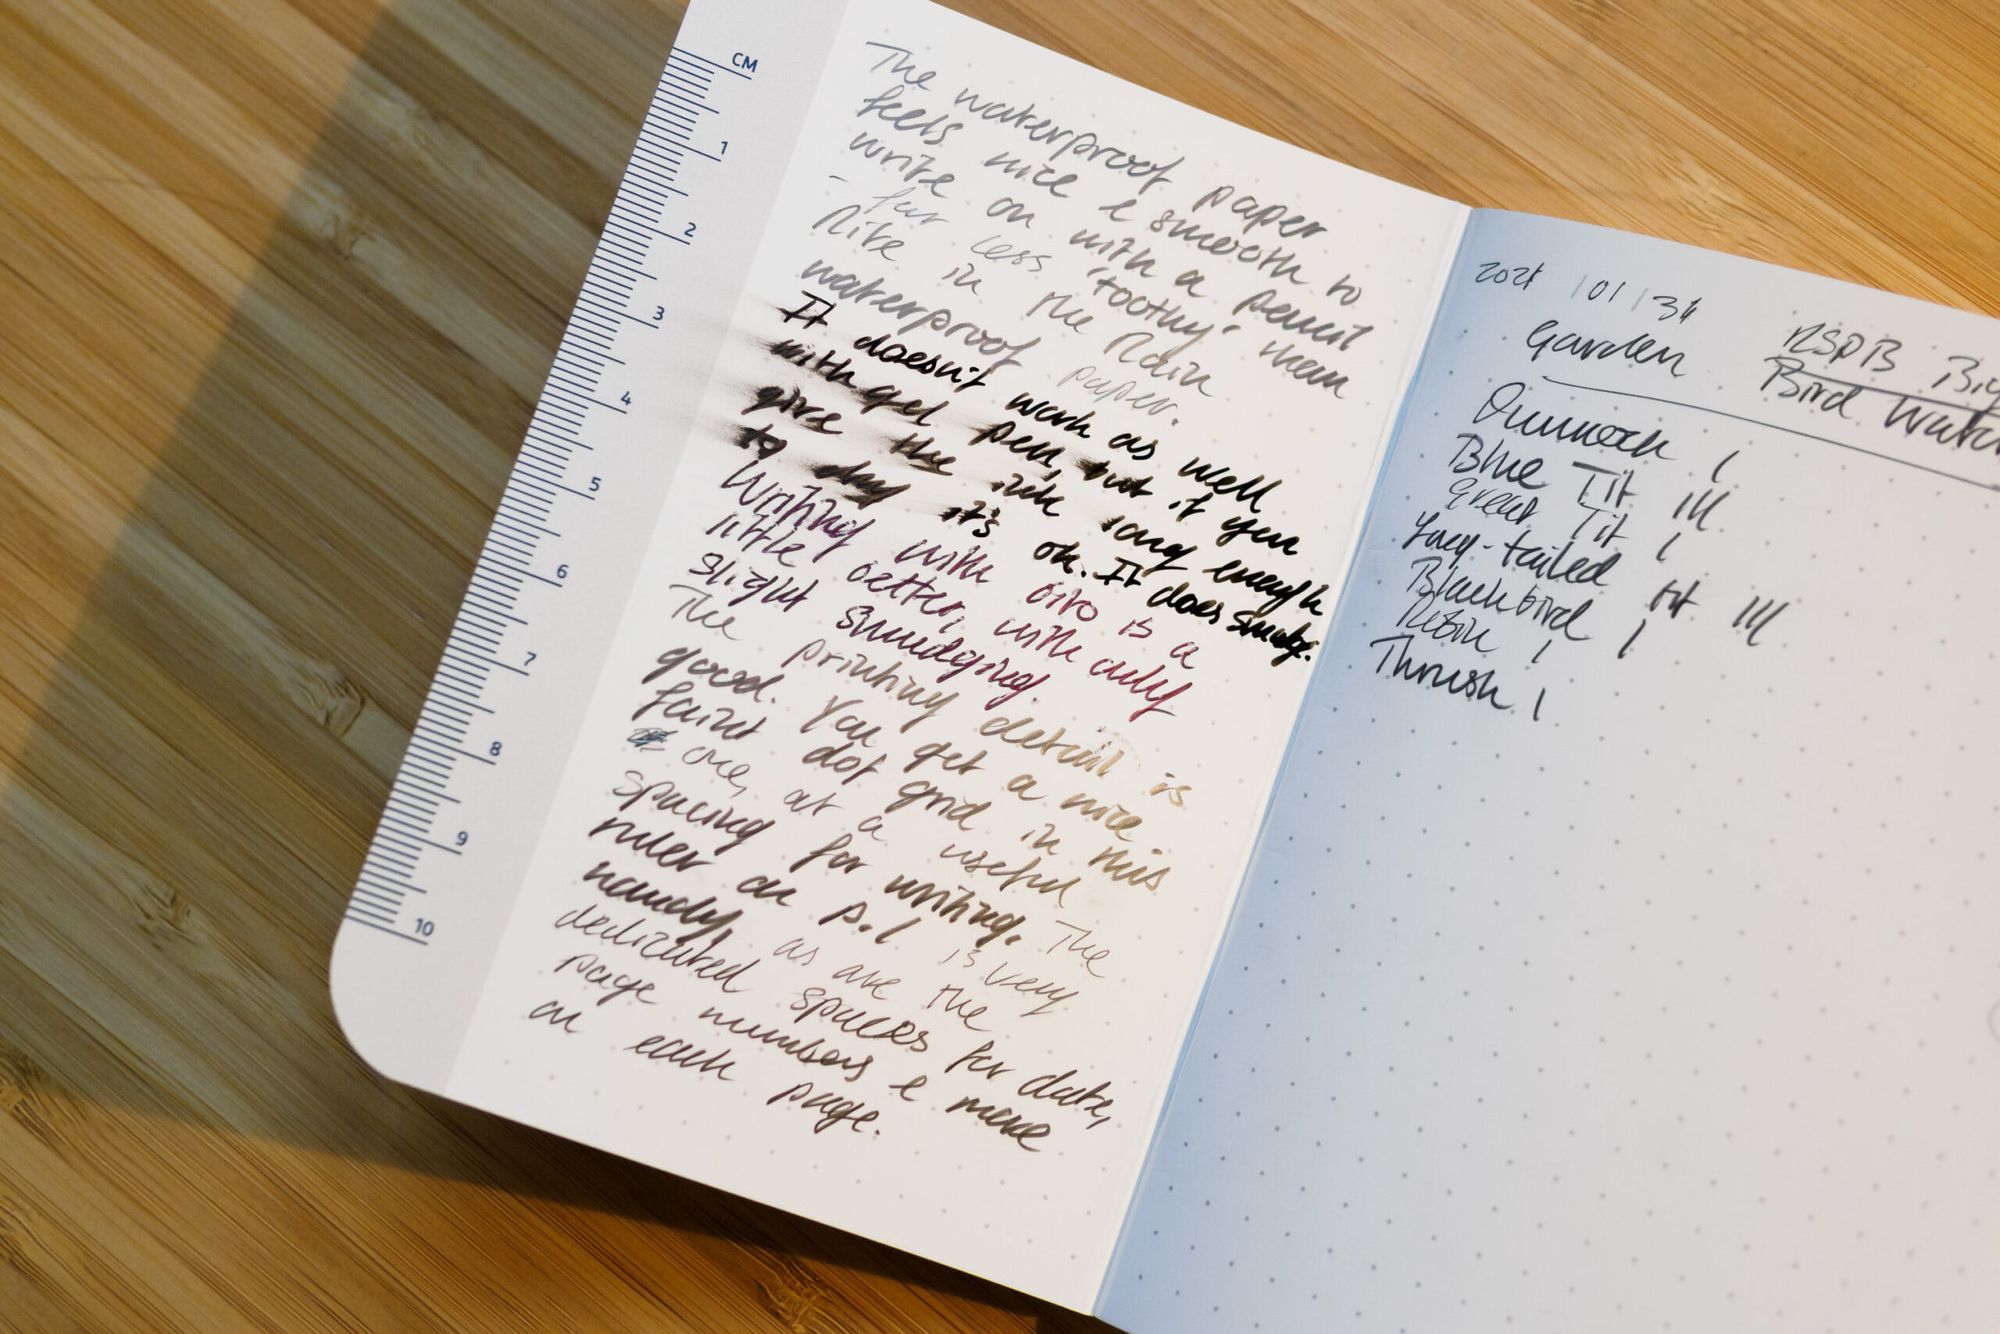 CM
1
2
3
4
5
6
7
8
9
10
The waterproof paper
feels nice & smooth to
write on with a pencil
- far less 'toothy' than
Rite in the Rain
waterproof paper.
It doesn't work as well
with gel pen but if you
give the ink long enough
to dry it's ok. It does smudge.
Writing with biro is a
little better, with only
slight smudging.
The printing detail is
good. You get a nice
faint dot grid in this
one, at a useful
spacing for writing. The
ruler on p.1 is very
handy, as are the
dedicated spaces for date,
page numbers & more
on each page.
2021 /01/31
Garden RSPB Big
Bird Watch
Dunnock I
Blue Tit III
Great Tit I
Long-tailed tit III
Blackbird I
Robin I
Thrush I